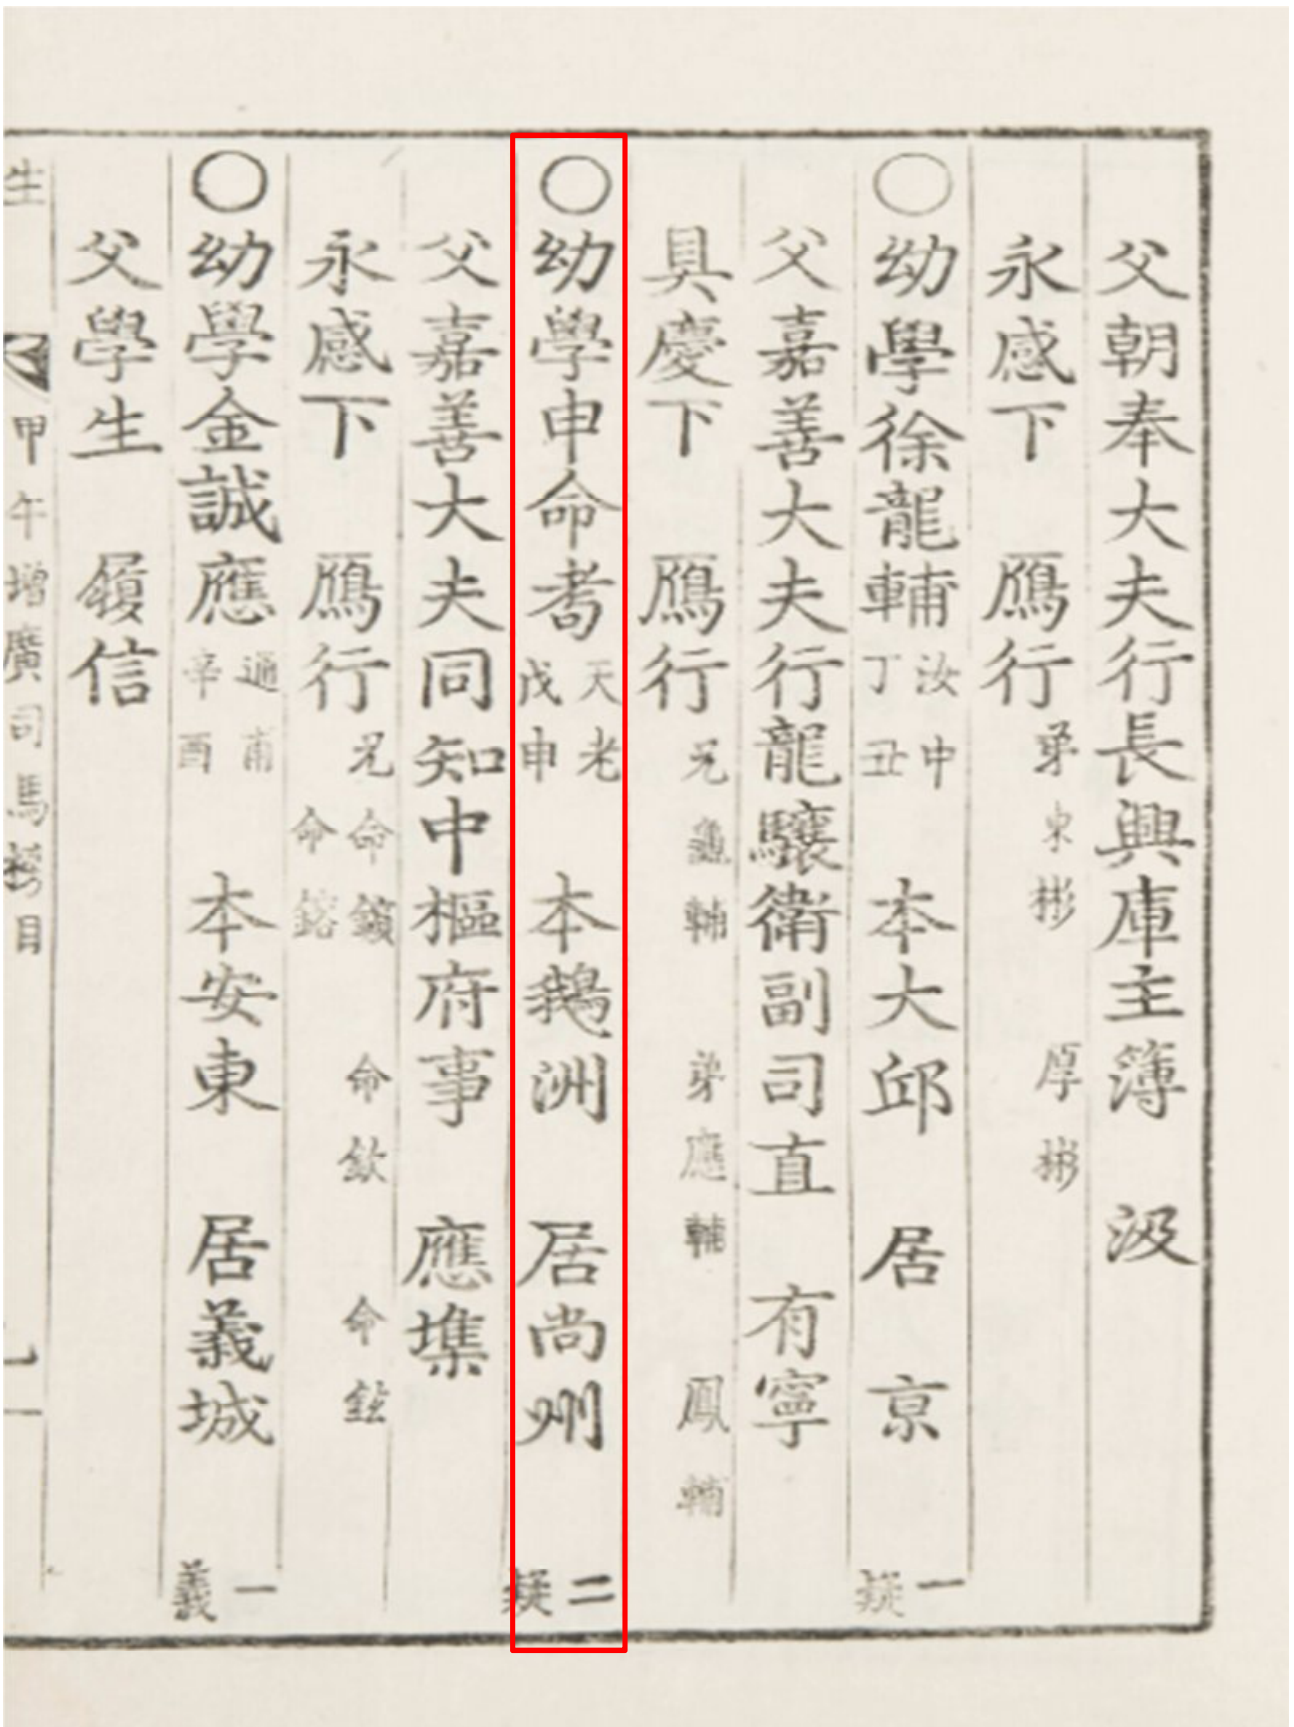 父朝奉大夫行長興庫主簿 汲
永感下 鴈行 弟東彬 厚彬
○幼學徐龍輔 汝中 丁丑 本大邱 居京 一疑
父嘉善大夫行龍驤衛副司直 有寧
具慶下 鴈行 兄龜輔 弟應輔 鳳輔
○幼學申命耉 天老 戊申 本鵝洲 居尚州 二疑
父嘉善大夫同知中樞府事 應㙫
永感下 鴈行 兄命鑌 命鎔 命欽 命鉉
○幼學金誠應 通甫 辛酉 本安東 居義城 一義
父學生 履信
生 甲午增廣司馬榜目